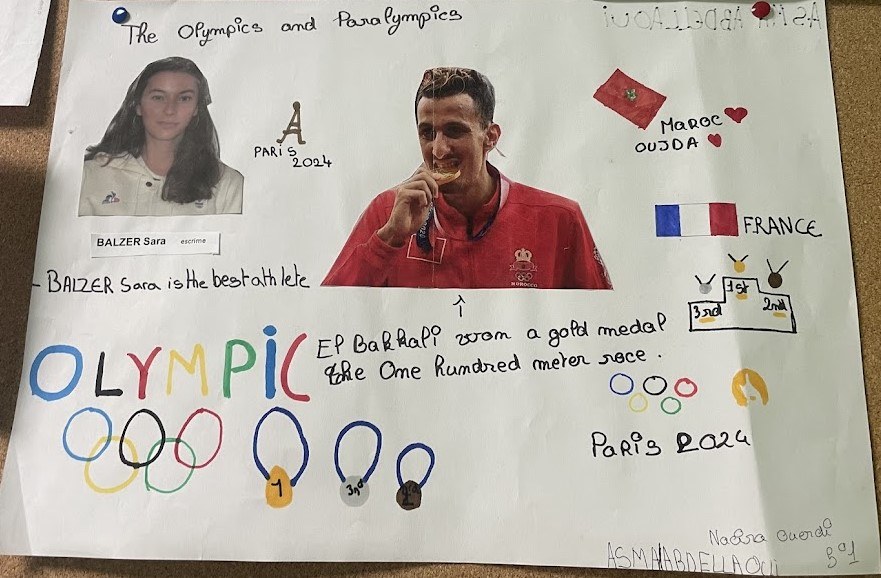 The Olympics and Paralympics
ASMA ABDELLAOUI
PARIS
2024
MAROC
OUJDA
BALZER Sara escrime
FRANCE
- BALZER Sara is the best athlete
MOROCCO
1st
3rd 2nd
OLYMPIC
El Bakkali won a gold medal
the One hundred meter race.
1
3rd
PARIS 2024
ASMA ABDELLAOUI
3°1